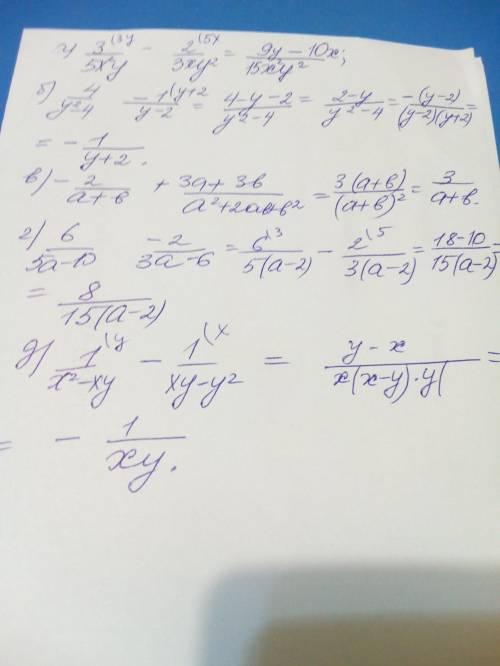 а) 3/5x²y (3y − 2/3xy² (5x = 9y − 10x/15x²y²;
б) 4/y²-4 − 1/y-2 (y+2 = 4-y-2/y²-4 = 2-y/y²-4 = -(y-2)/(y-2)(y+2) =
= − 1/y+2.
в) − 2/a+в + 3a+3в/a²+2aв+в² = 3(a+в)/(a+в)² = 3/a+в.
г) 6/5a-10 − 2/3a-6 = 6\3/5(a-2) − 2\5/3(a-2) = 18-10/15(a-2) =
= 8/15(a-2)
д) 1/x²-xy (y − 1/xy-y² (x = y-x/x(x-y)·y( =
= − 1/xy.